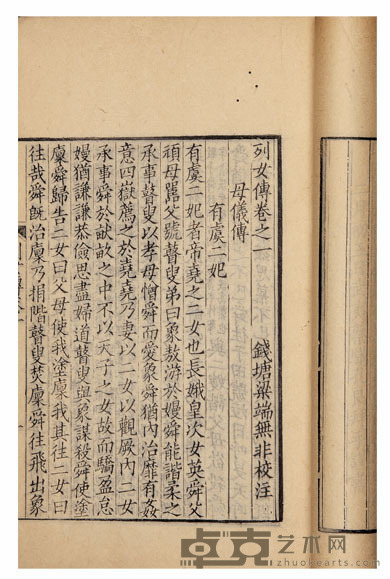 列女傳卷之一
錢塘梁端無非校注
母儀傳
有虞二妃
有虞二妃者帝堯之二女也長娥皇次女英舜父
頑母嚚父號瞽叟弟曰象敖游於嫚舜能諧柔之
承事瞽叟以孝母憎舜而愛象舜猶內治靡有姦
意四嶽薦之於堯堯乃妻以二女以觀厥內二女
承事舜於畎畝之中不以天子之女故而驕盈怠
嫚猶謙謙恭儉思盡婦道瞽叟與象謀殺舜使塗
廩舜歸告二女曰父母使我塗廩我其往二女曰
往哉舜既治廩乃捐階瞽叟焚廩舜往飛出象
卓克艺术网
www.zhuokearts.com